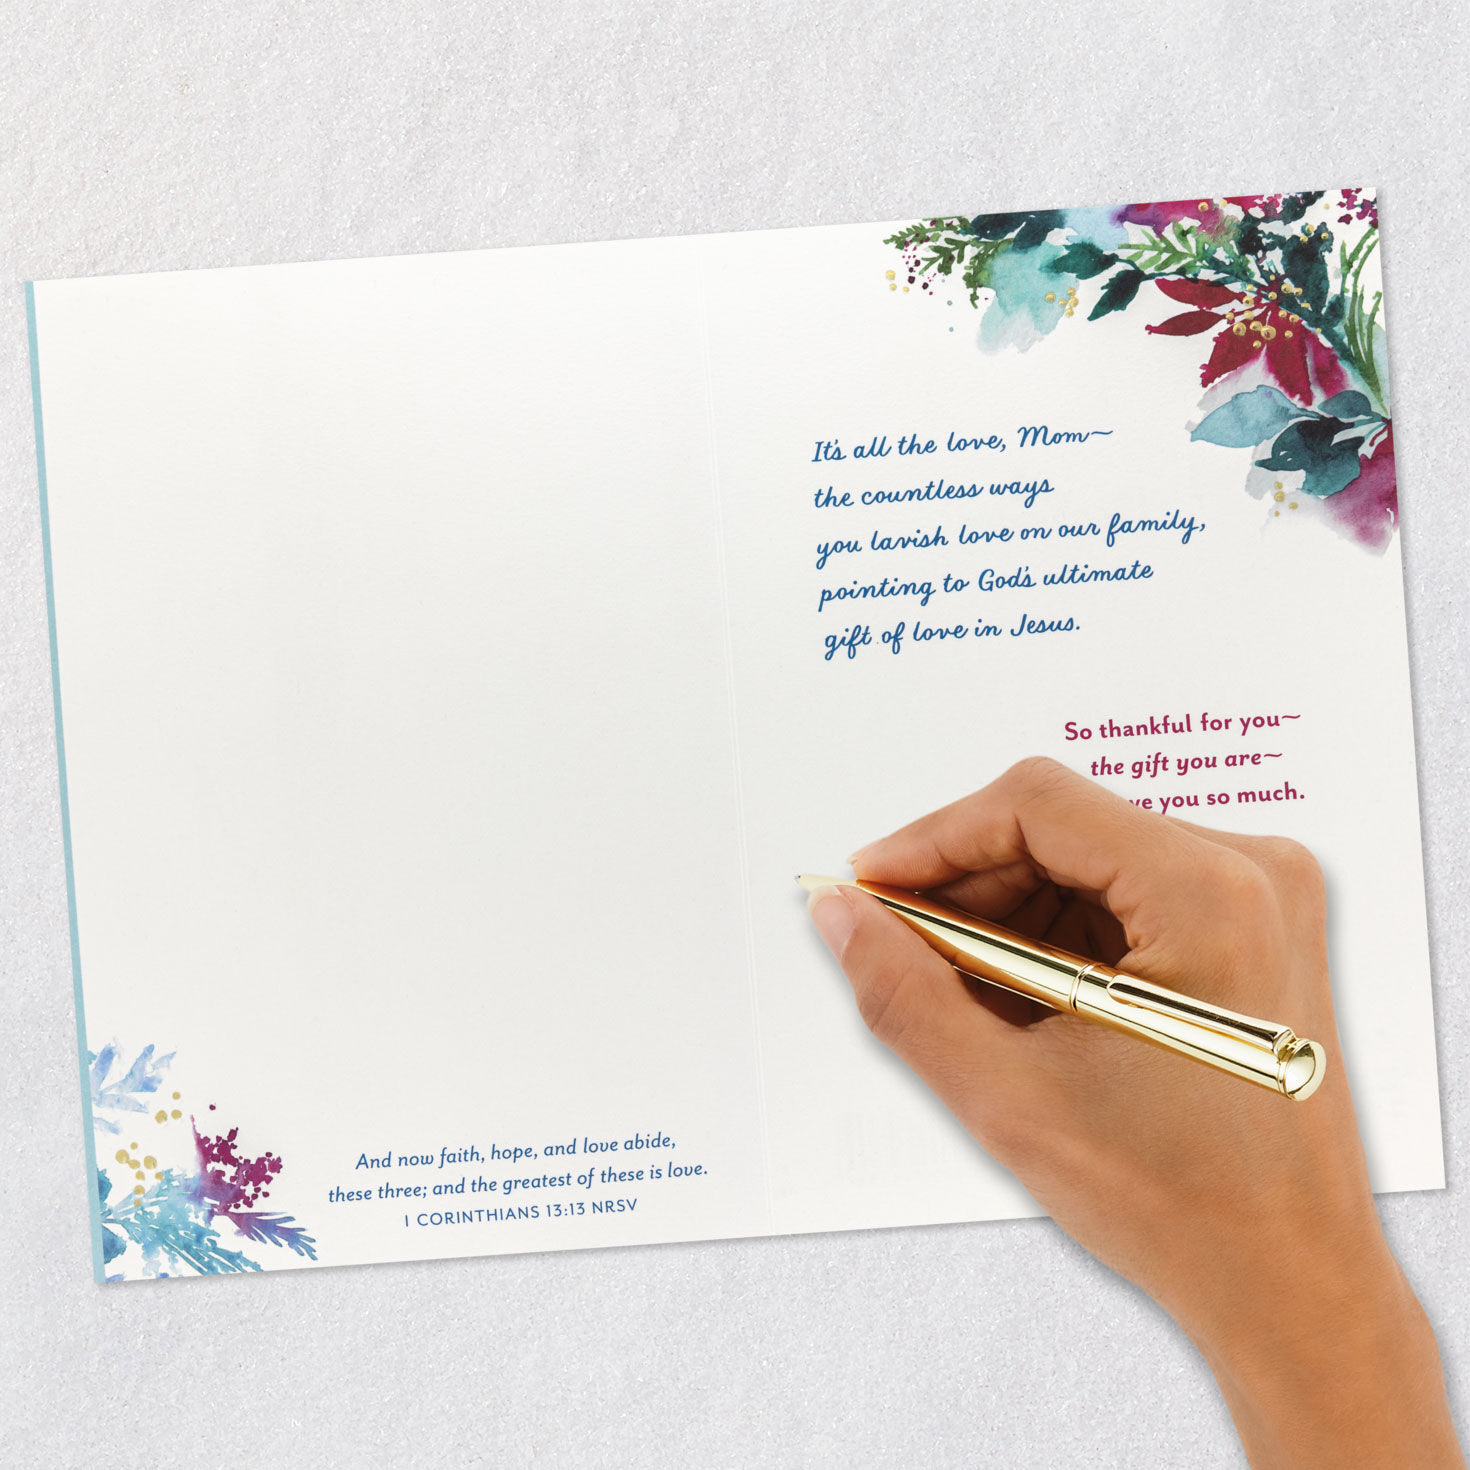 And now faith, hope, and love abide,
these three; and the greatest of these is love.
1 CORINTHIANS 13:13 NRSV
It's all the love, Mom~
the countless ways
you lavish love on our family,
pointing to God's ultimate
gift of love in Jesus.
So thankful for you~
the gift you are~
you so much.